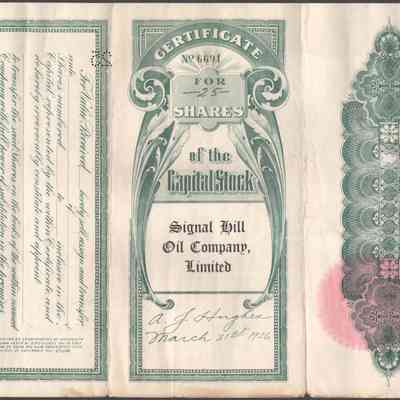 For Value Received, hereby sell, assign and transfer
unto
Shares numbered to inclusive in the
Capital represented by the within Certificate and
do hereby irrevocably constitute and appoint
to transfer the said Shares on the books of the within named
Company with full power of substitution in the premises.
CERTIFICATE
No 6691
FOR
25
SHARES
of the
Capital Stock
Signal Hill
Oil Company,
Limited
A. J. Hughes
March 31st 1926